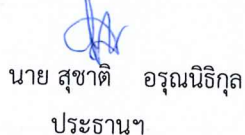 นาย สุชาติ อรุณนิธิกุล
ประธานฯ